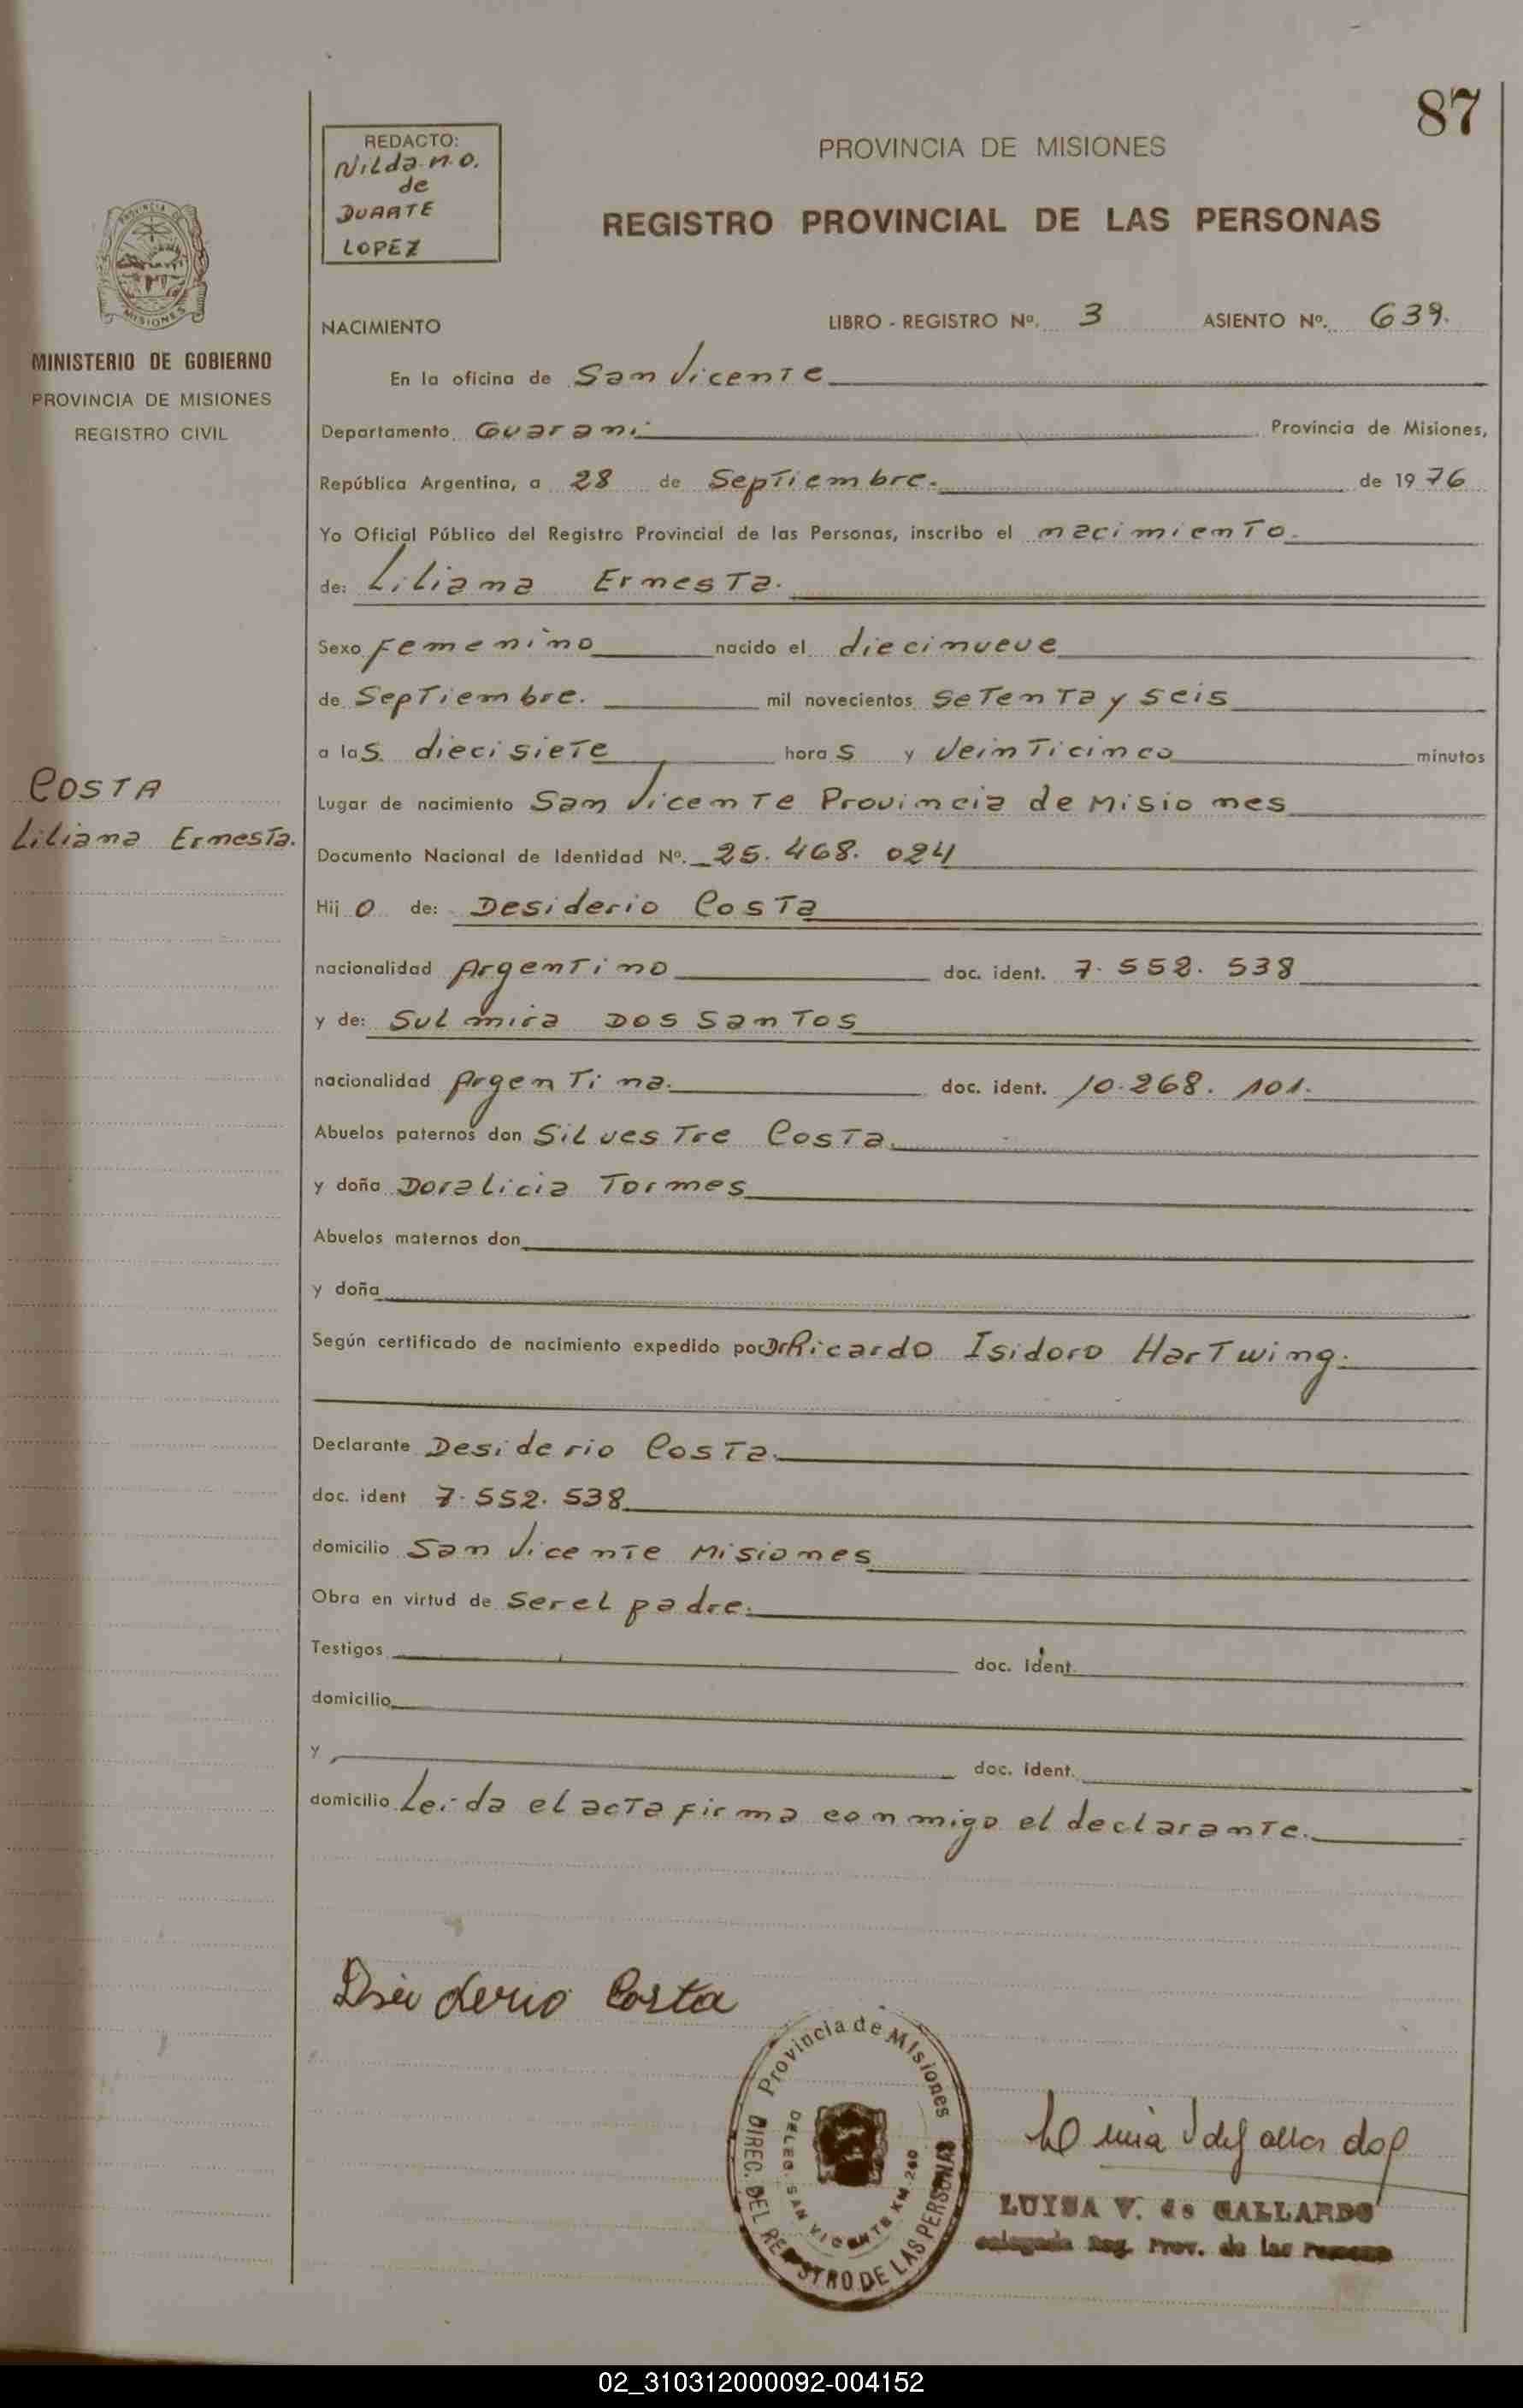 87
REDACTO:
Nilda. N. O.
de
DUARTE
LOPEZ
PROVINCIA DE MISIONES
REGISTRO PROVINCIAL DE LAS PERSONAS
PROVINCIA DE
MISIONES
MINISTERIO DE GOBIERNO
PROVINCIA DE MISIONES
REGISTRO CIVIL
NACIMIENTO
LIBRO - REGISTRO Nº. 3 ASIENTO Nº. 639.
En la oficina de San Vicente
Departamento Guarani Provincia de Misiones,
República Argentina, a 28 de Septiembre. de 1976
Yo Oficial Público del Registro Provincial de las Personas, inscribo el nacimiento.
de: Liliana Ernesta.
Sexo Femenino nacido el diecinueve
de Septiembre. mil novecientos setenta y seis
a las diecisiete horas y veinticinco minutos
COSTA
Liliana Ernesta.
Lugar de nacimiento San Vicente Provincia de Misiones
Documento Nacional de Identidad Nº. 25. 468. 024
Hijo de: Desiderio Costa
nacionalidad Argentino doc. ident. 7. 552. 538
y de: Sulmira DOS SANTOS
nacionalidad Argentina. doc. ident. 10.268. 101.
Abuelos paternos don Silvestre Costa.
y doña Doralicia Tormes
Abuelos maternos don
y doña
Según certificado de nacimiento expedido por Dr Ricardo Isidoro Hartwing.
Declarante Desiderio Costa.
doc. ident 7. 552. 538
domicilio San Vicente Misiones
Obra en virtud de ser el padre.
Testigos doc. Ident.
domicilio
y doc. Ident.
domicilio Leida el acta firma conmigo el declarante.
Desiderio Costa
Provincia de Misiones
DIREC. DEL REGISTRO DE LAS PERSONAS
DELEG. SAN VICENTE KM. 260
LUISA V. de GALLARDO
Reg. Prov. de las Personas
02_310312000092-004152